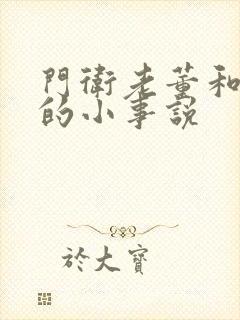 門衛老董和
的小事說
於大寶